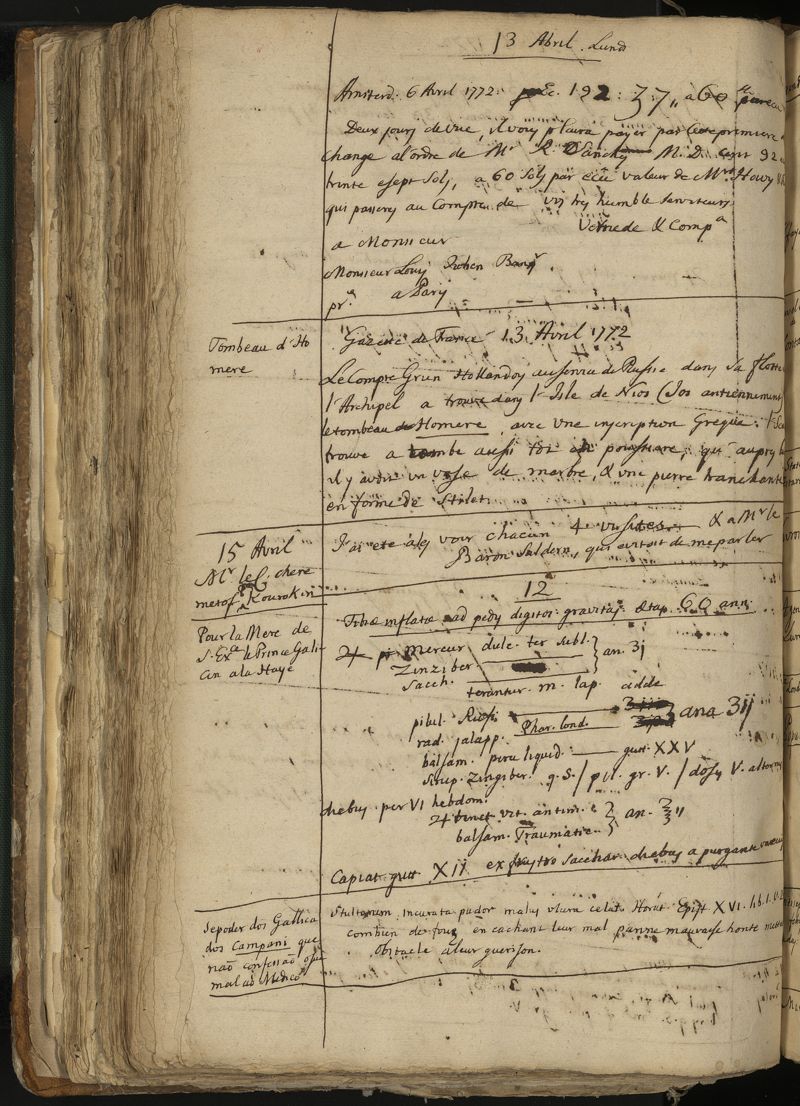 13 Abril. Lundi
Amsterd. 6 Avril 1772. 192: 37,, a 60
Deux jours de vue, il vous plaira payer par cette premiere
change a l'ordre de Mr Sanches M. D. cent 92
trinte e sept sols, a 60 sols par ecu valeur de Mrs
qui passeres au Compte de vos tres humble serviteurs
Vernede & Compa
a Monsieur
Monsieur Louis Banqr.
pr.a a Paris
Tombeau d'Ho
mere
Gazette de France 13 Avril 1772
Le Compte Grun Hollandois au service de Russie dans sa flotte
l'Archipel a trouve dans l'Isle de Nios (Ios antiennement
le tombeau de Homere, avec une inscription Greque:
trouve a tombe aussi tot en poussiere, qu'aupres
il y avoit un vase de marbre, & une pierre tranchante
en forme de Stilet.
15 Avril
Mr le C. Chere
metof, Kourakin
J'ai ete ales voir chacun 4 visites & a Mr le
Baron Saldern, qui evitoit de me parler
12
Pour la Mere de
S. Exa. le Prince Gali
cin a la Haye
Tibiæ inflatæ ad pedis digitos: gravitas: ætas 60 ann:
♃ mercur dulc. ter subl.
Zinziber.
Sacch.
an. ʒj
terantur. m. lap. adde
pilul. Rufi
rad. jalapp. Phar. lond.
ana ʒij
balsam. peru liquid. gutt. XXV
Sirup. Zingiber. q. S. / pil. gr. V. / dosis V. alternis
diebus. per VI hebdom:
♃ vit. antim.
balsam. Traumatic.
an. ʒij
Capiat gutt XII ex saccharo diebus a purgante
Se poder dos Gallica
dos Campani que
não confessão o seu
mal ao Medico
Stultorum incurata pudor malus ulcera celat. Horat. Epist XVI. lib. 1.
combien de fous en cachant leur mal par une mauvaise honte
obstacle a leur guerison.